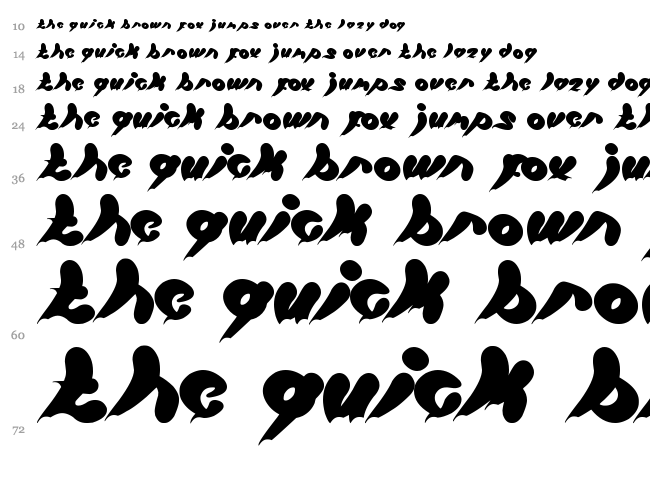 10 the quick brown fox jumps over the lazy dog
14 the quick brown fox jumps over the lazy dog
18 the quick brown fox jumps over the lazy dog
24 the quick brown fox jumps over th
36 the quick brown fox ju
48 the quick brown
60 the quick bro
72 the quick b